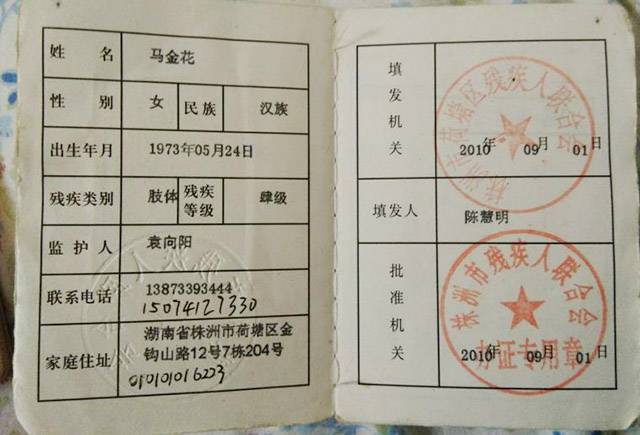 姓名 马金花
性别 女 民族 汉族
出生年月 1973年05月24日
残疾类别 肢体 残疾等级 肆级
监护人 袁向阳
联系电话 13873393444
15074127330
家庭住址 湖南省株洲市荷塘区金
钩山路12号7栋204号
010101016223
填发机关
株洲市荷塘区残疾人联合会
2010年 09月 01日
填发人 陈慧明
批准机关
株洲市残疾人联合会
办证专用章
2010年 09月 01日